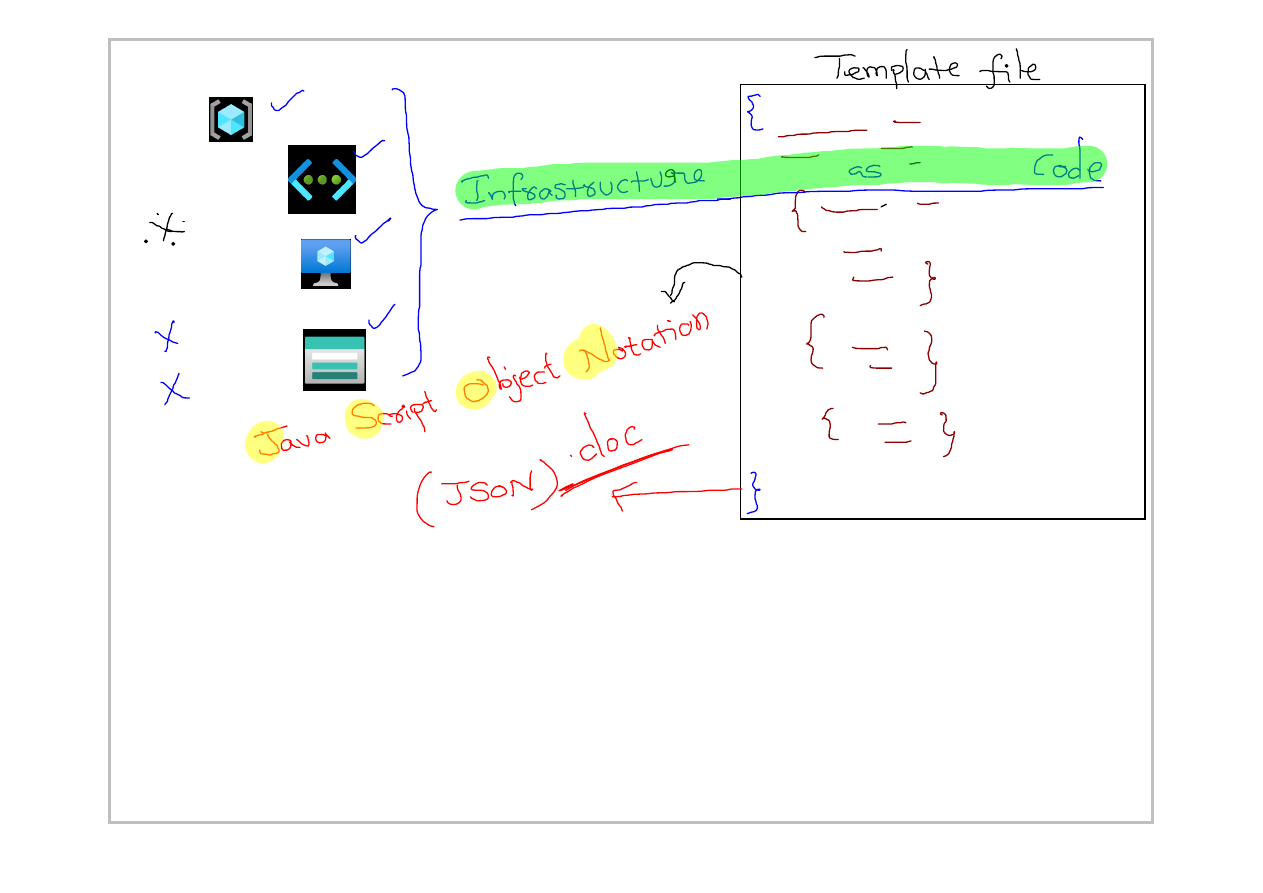 Template file
{
Infrastructure as Code
{
}
{ }
Java Script Object Notation
{ }
(JSON) .doc
}
x
x